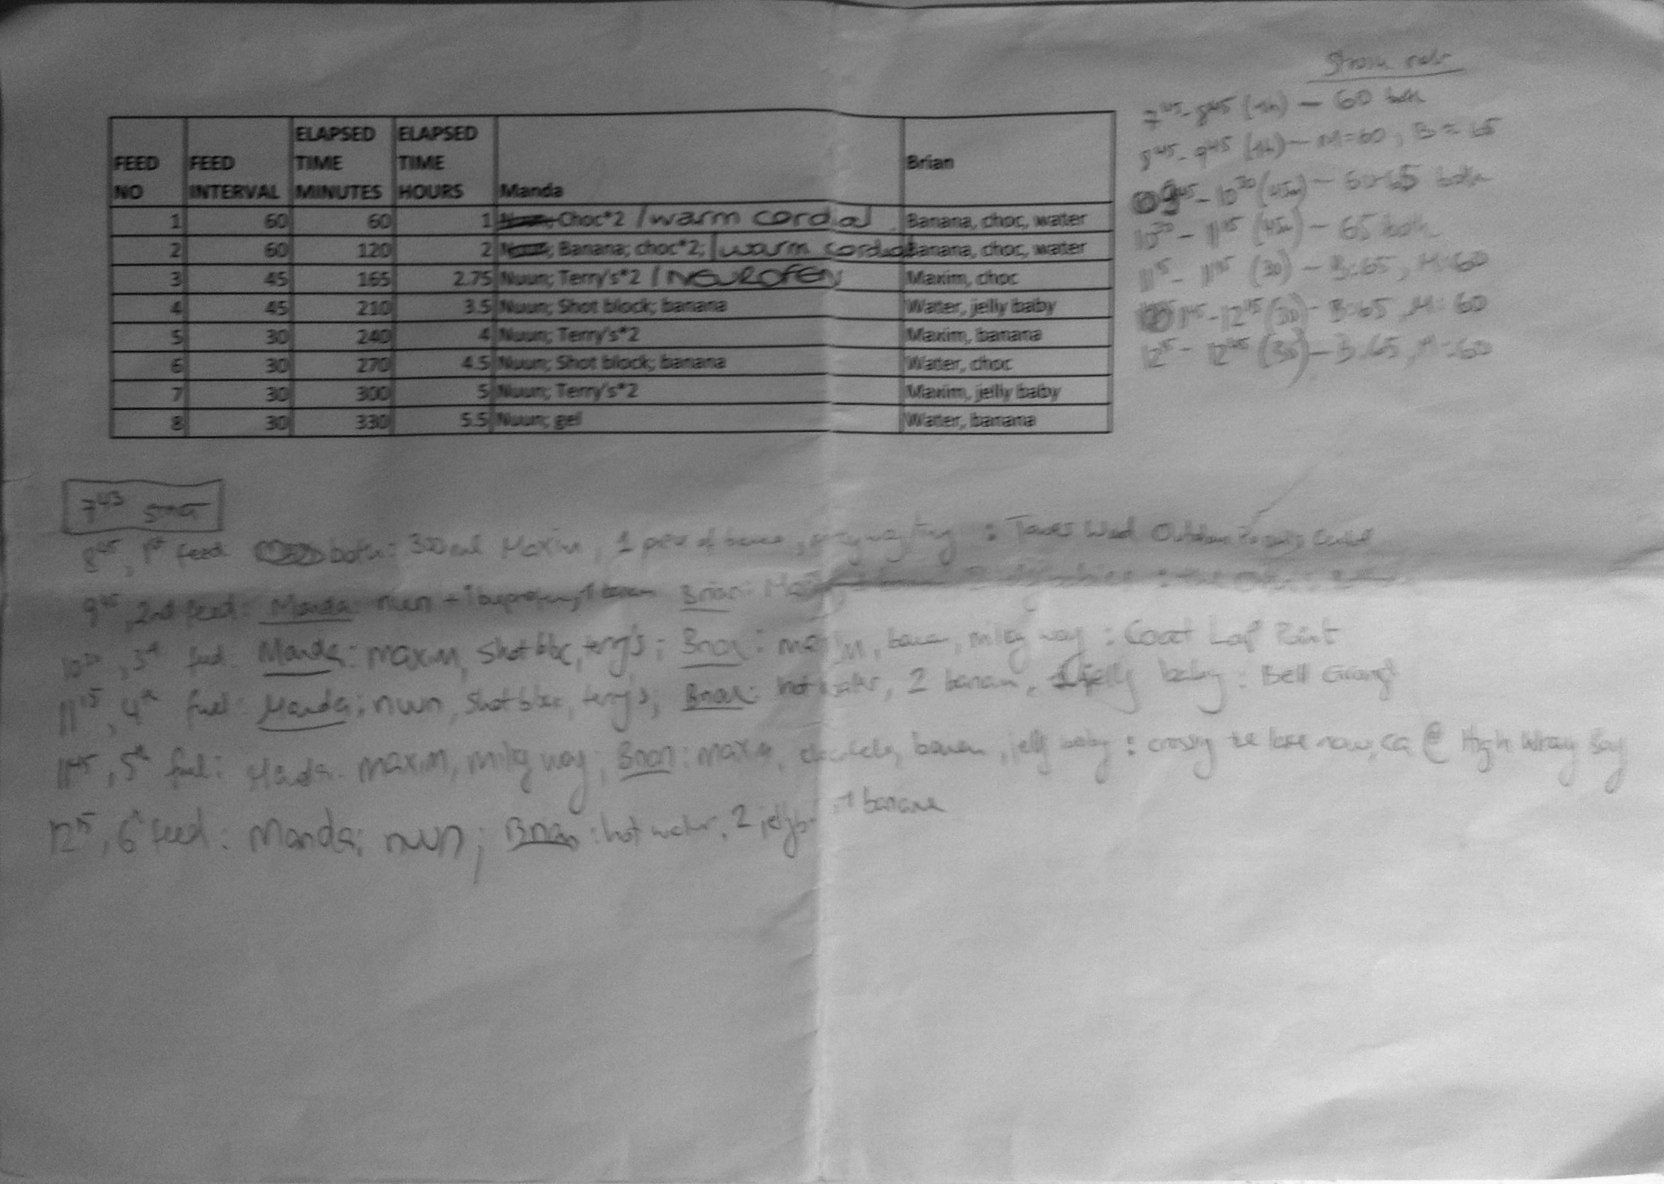 FEED NO | FEED INTERVAL | ELAPSED TIME MINUTES | ELAPSED TIME HOURS | Manda | Brian
1 | 60 | 60 | 1 | Choc*2 /warm cordial | Banana, choc, water
2 | 60 | 120 | 2 | Banana; choc*2; /warm cordial | Banana, choc, water
3 | 45 | 165 | 2.75 | Nuun; Terry's*2 /NEUROFEN | Maxim, choc
4 | 45 | 210 | 3.5 | Nuun; Shot block; banana | Water, jelly baby
5 | 30 | 240 | 4 | Nuun; Terry's*2 | Maxim, banana
6 | 30 | 270 | 4.5 | Nuun; Shot block; banana | Water, choc
7 | 30 | 300 | 5 | Nuun; Terry's*2 | Maxim, jelly baby
8 | 30 | 330 | 5.5 | Nuun; gel | Water, banana
7⁴⁵ - 8⁴⁵ (1h) - 60 both
8⁴⁵ - 9⁴⁵ (1h) - M=60, B=65
9⁴⁵ - 10³⁰ (45m) - 60-65 both
10³⁰ - 11¹⁵ (45m) - 65 both
11¹⁵ - 11⁴⁵ (30) - B:65, M:60
11⁴⁵ - 12¹⁵ (30) - B:65, M:60
12¹⁵ - 12⁴⁵ (30) - B:65, M:60
start
8⁴⁵, 1st feed both: 300ml Maxim, 1 piece of
9⁴⁵, 2nd feed: Manda: nuun + ibuprofen, Brian:
10³⁰, 3rd feed: Manda: maxim, shot bloc, terry's; Brian: maxim, banana, milky way:
11¹⁵, 4th feed: Manda: nuun, shot bloc, terry's; Brian: hot water, 2 banana, 1 jelly baby: Bell Grange
11⁴⁵, 5th feed: Manda: maxim, milky way; Brian: maxim, banana, jelly baby: crossing the lake now, ca @ High Wray Bay
12¹⁵, 6th feed: Manda: nuun; Brian: hot water, 2 + banana